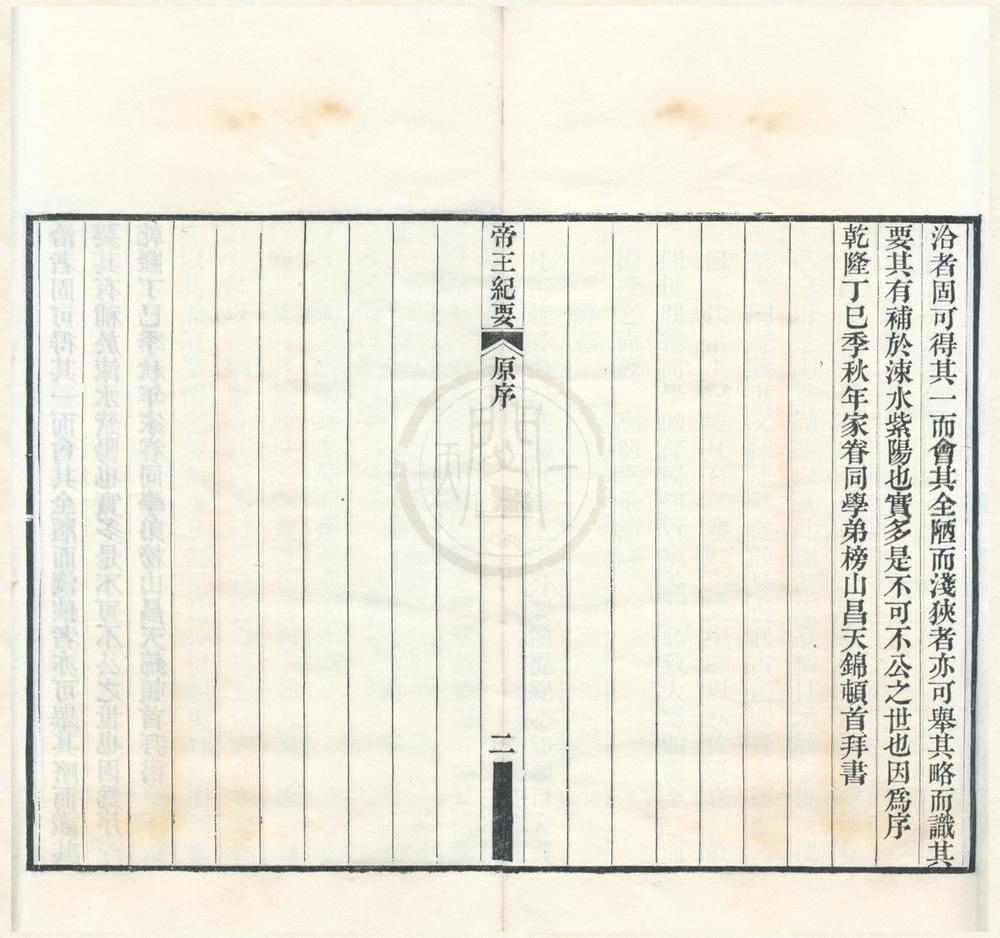 洽者固可得其一而會其全陋而淺狹者亦可舉其略而識其
要其有補於涑水紫陽也實多是不可不公之世也因爲序
乾隆丁巳季秋年家眷同學弟榜山昌天錦頓首拜書
帝王紀要
原序
二